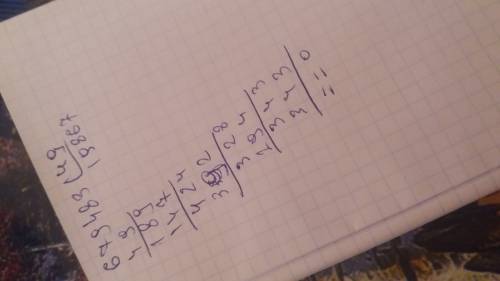 679483 49
49 13867
189
147
424
392
328
294
343
343
= = 0